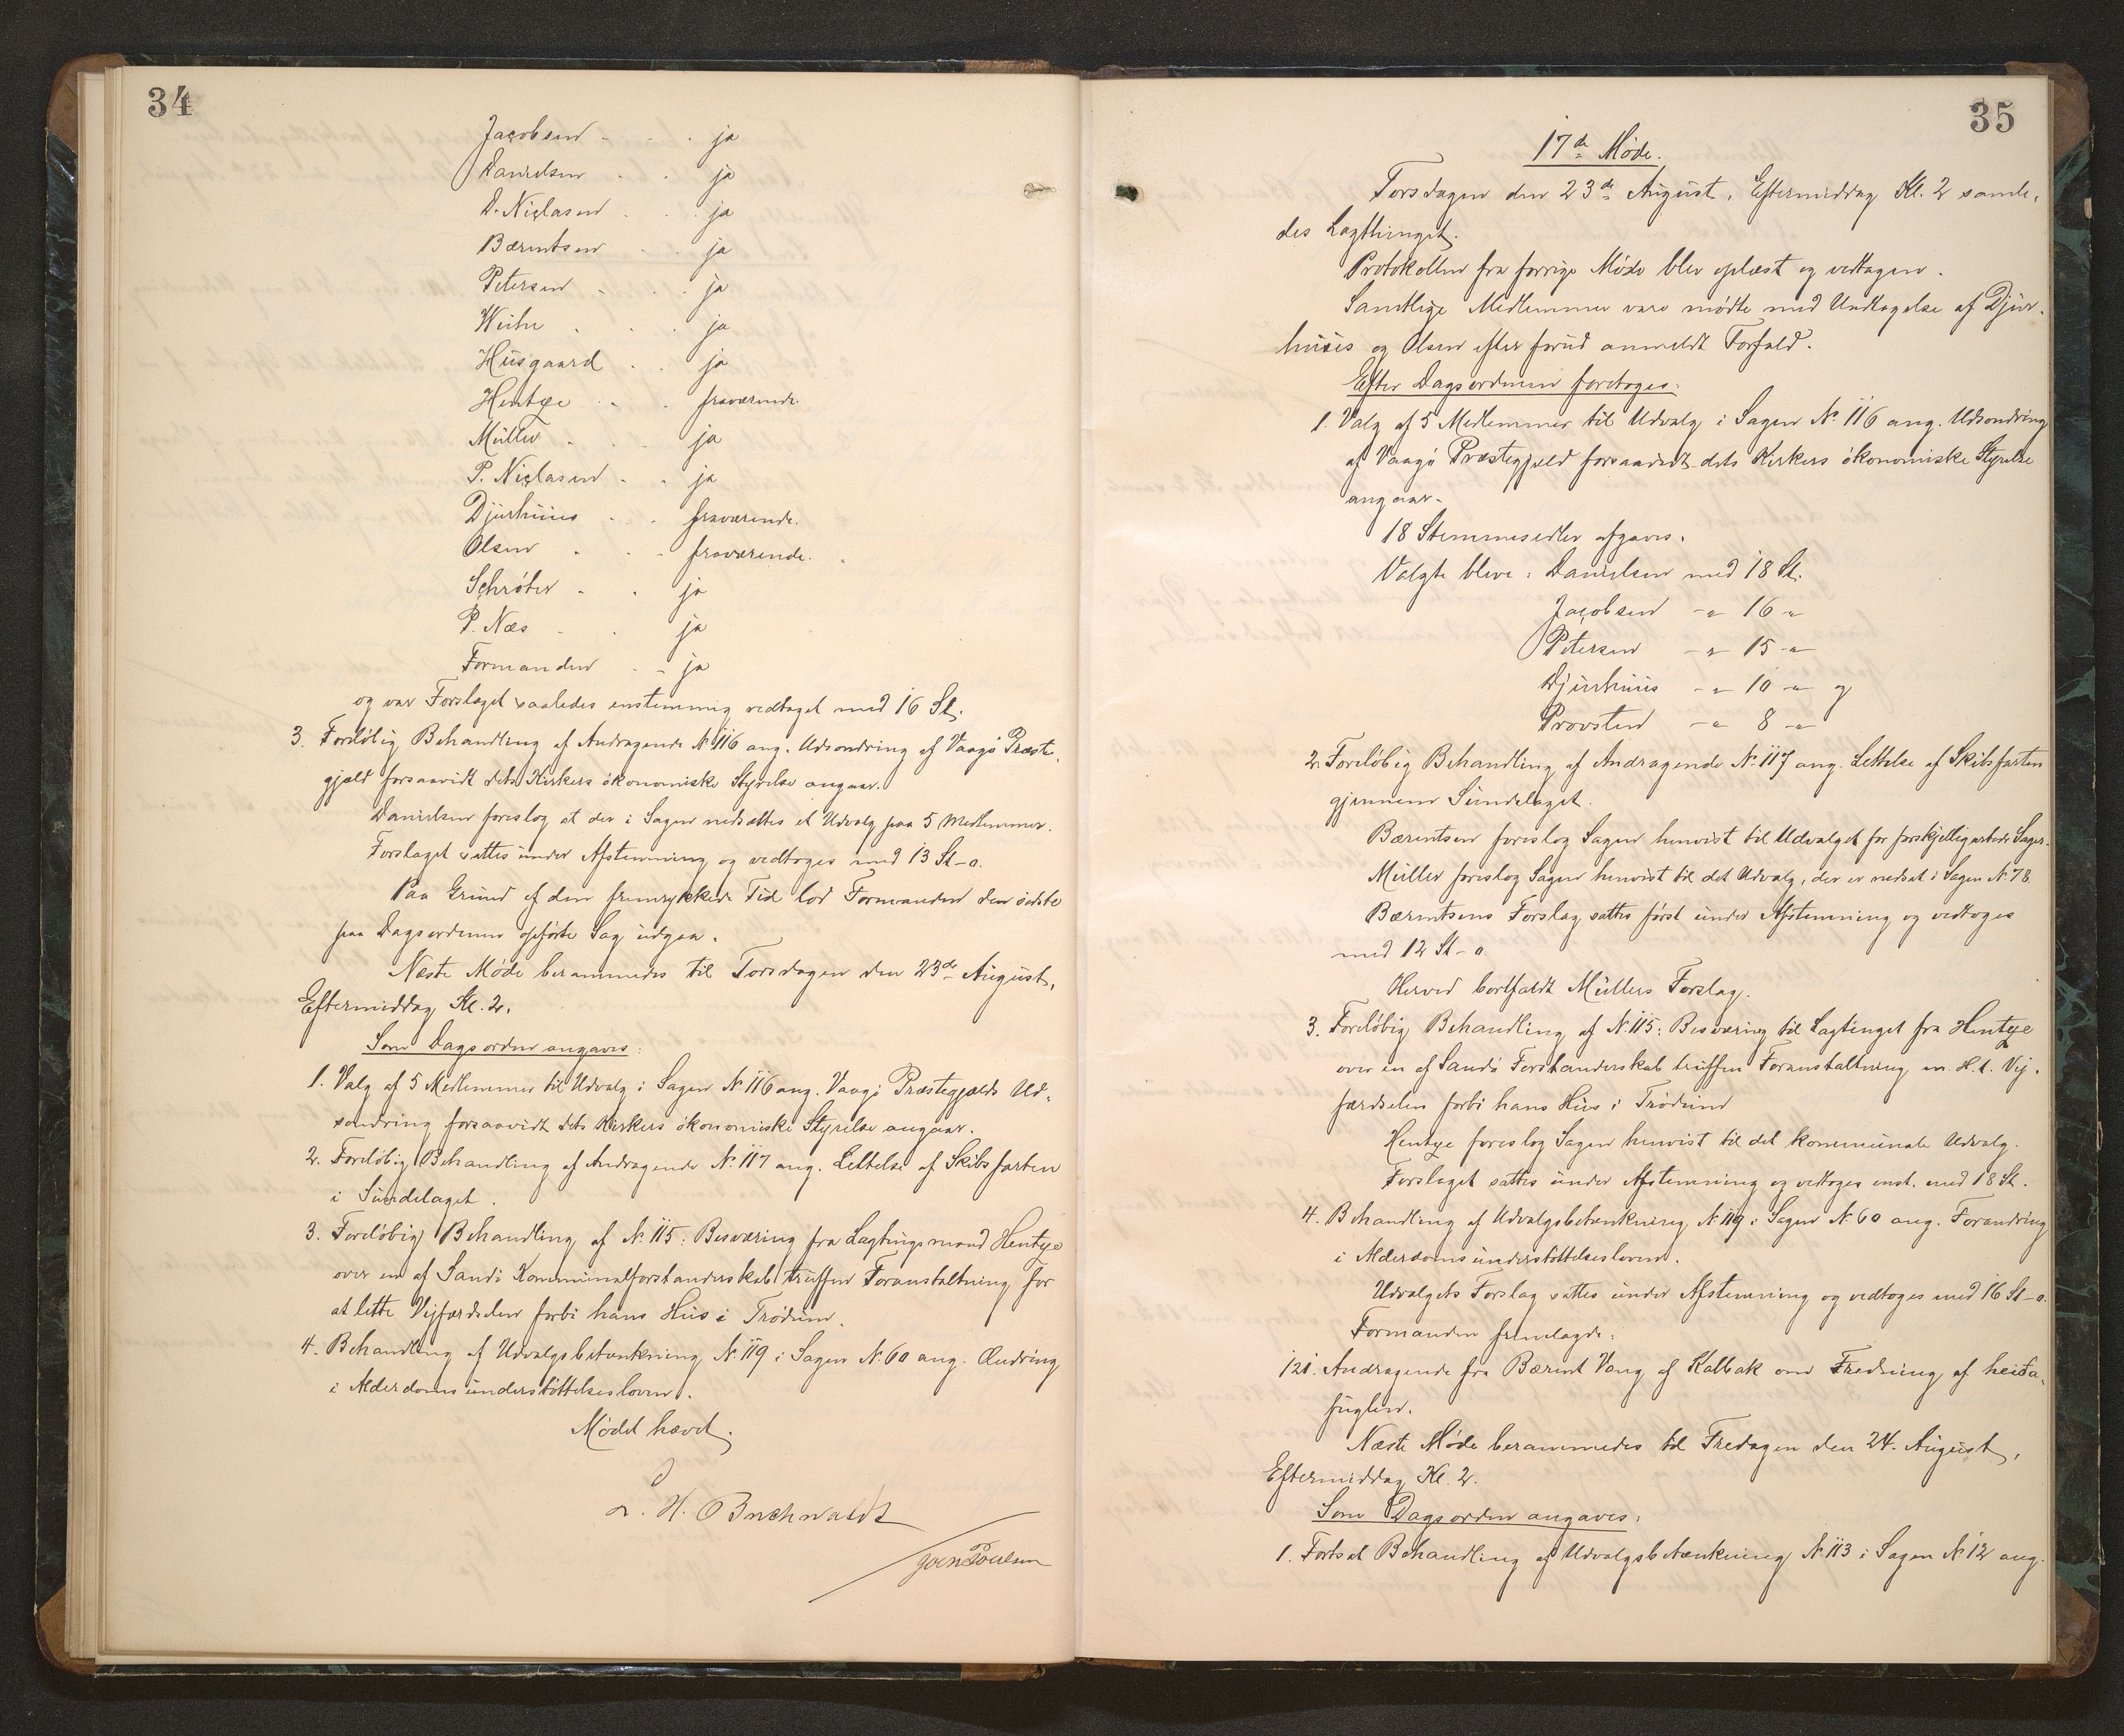 34
Jacobsen - - . ja
Danielsen . . ja
D. Niclasen . . ja
Bærentsen . . ja
Petersen - . . ja
Weihe . . . ja
Husgaard . . ja
Hentze . . . fraværende.
Müller . . . ja
P. Niclasen . . ja
Djurhuus . . . fraværende.
Olsen . . . fraværende.
Schrøter . . ja
P. Næs . . ja
Formanden . - ja
og var Forslaget saaledes enstemmig vedtaget med 16 St.
3. Foreløbig Behandling af Andragende № 116 ang. Udsondring af Vaagø Præste-
gjæld forsaavidt dets Kirkers økonomiske Styrelse angaar.
Danielsen foreslog at der i Sagen nedsættes et Udvalg paa 5 Medlemmer.
Forslaget sattes under Afstemning og vedtoges med 13 St-0.
Paa Grund af den fremrykkede Tid lod Formanden den sidste
paa Dagsordenen opførte Sag udgaa.
Næste Møde berammedes til Torsdagen den 23de August,
Eftermiddag Kl. 2.
Som Dagsorden angaves:
1. Valg af 5 Medlemmer til Udvalg i Sagen № 116 ang. Vaagø Præstegjælds Ud-
sondring forsaavidt dets Kirkers økonomiske Styrelse angaar.
2. Foreløbig Behandling af Andragende № 117 ang. Lettelse af Skibsfarten
i Sundelaget.
3. Foreløbig Behandling af № 115: Besværing fra Lagtingsmand Hentze
over en af Sandø Kommunalforstanderskab truffen Foranstaltning for
at lette Vejfærdselen forbi hans Hus i Trødum.
4. Behandling af Udvalgsbetænkning № 119 i Sagen № 60 ang. Ændring
i Alderdomsunderstøttelsesloven.
Mødet hævet.
L. H. Buchwaldt
Joen Poulsen
35
17de Møde.
Torsdagen den 23de August, Eftermiddag Kl. 2 samle-
des Lagthinget.
Protokollen fra forrige Møde blev oplæst og vedtagen.
Samtlige Medlemmer vare mødte med Undtagelse af Djur-
huus og Olsen efter forud anmeldt Forfald.
Efter Dagsordenen foretoges:
1. Valg af 5 Medlemmer til Udvalg i Sagen № 116 ang. Udsondring
af Vaagø Præstegjæld forsaavidt dets Kirkers økonomiske Styrelse
angaar.
18 Stemmesedler afgaves.
Valgte bleve: Danielsen med 18 St.
Jacobsen -"- 16 -"-
Petersen -"- 15 -"-
Djurhuus -"- 10 -"- og
Provsten -"- 8 -"-
2. Foreløbig Behandling af Andragende № 117 ang. Lettelse af Skibsfarten
gjennem Sundelaget.
Bærentsen foreslog Sagen henvist til Udvalget for forskjelligartede Sager.
Müller foreslog Sagen henvist til det Udvalg, der er nedsat i Sagen № 78.
Bærentsens Forslag sattes først under Afstemning og vedtoges
med 12 St-0.
Herved bortfaldt Müllers Forslag.
3. Foreløbig Behandling af № 115: Besværing til Lagtinget fra Hentze
over en af Sandø Forstanderskab truffen Foranstaltning m. H. t. Vej-
færdselen forbi hans Hus i Trødum
Hentze foreslog Sagen henvist til det kommunale Udvalg.
Forslaget sattes under Afstemning og vedtoges enst. med 18 St.
4. Behandling af Udvalgsbetænkning № 119 i Sagen № 60 ang. Forandring
i Alderdomsunderstøttelsesloven.
Udvalgets Forslag sattes under Afstemning og vedtoges med 16 St-0.
Formanden fremlagde:
121. Andragende fra Bærent Vang af Kalbak om Fredning af heiða-
fuglen.
Næste Møde berammedes til Fredagen den 24. August,
Eftermiddag Kl. 2.
Som Dagsorden angaves:
1. Fortsat Behandling af Udvalgsbetænkning № 113 i Sagen № 12 ang.